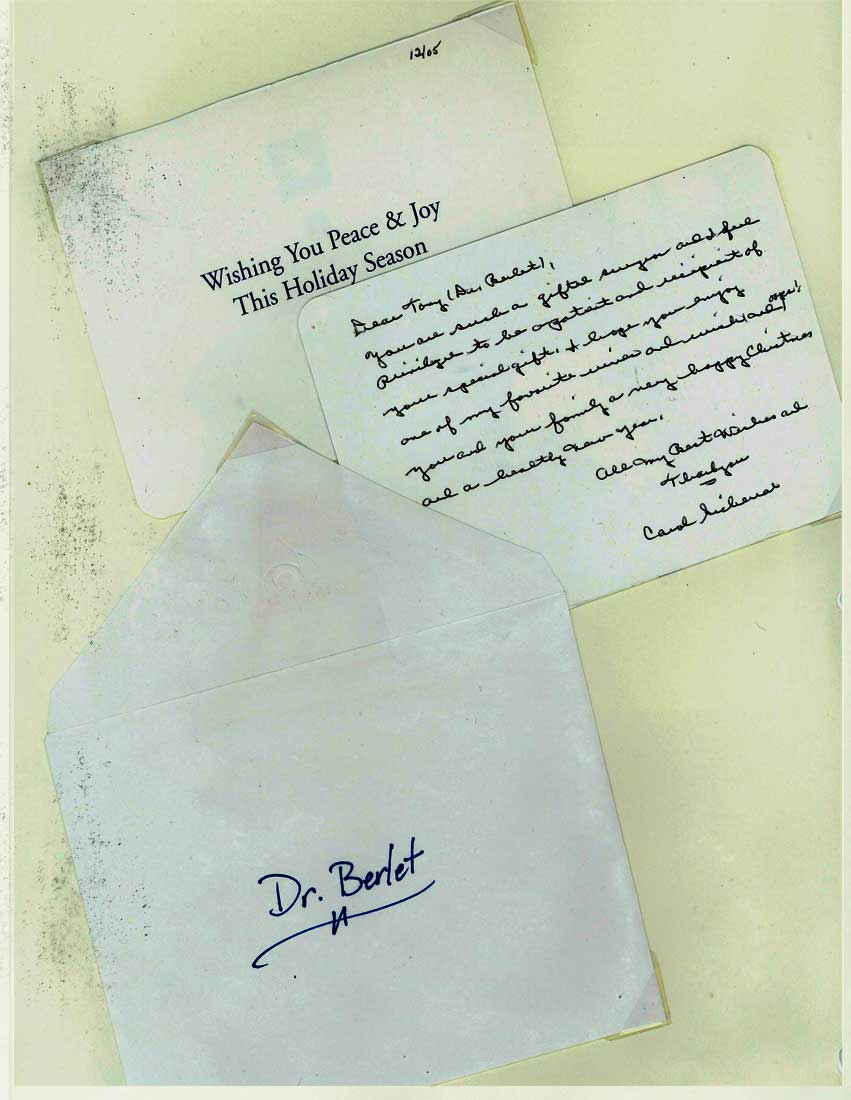 12/05
Wishing You Peace & Joy
This Holiday Season
Dear Tony (Dr. Berlet),
You are such a gifted surgeon and I feel
privilege to be a patient and recipient of
your special gift. I hope you enjoy
one of my favorite wines and wish (and) oops!
you and your family a very happy Christmas
and a healthy New Year.
All my Best Wishes and
Thank you
Carol
Dr. Berlet